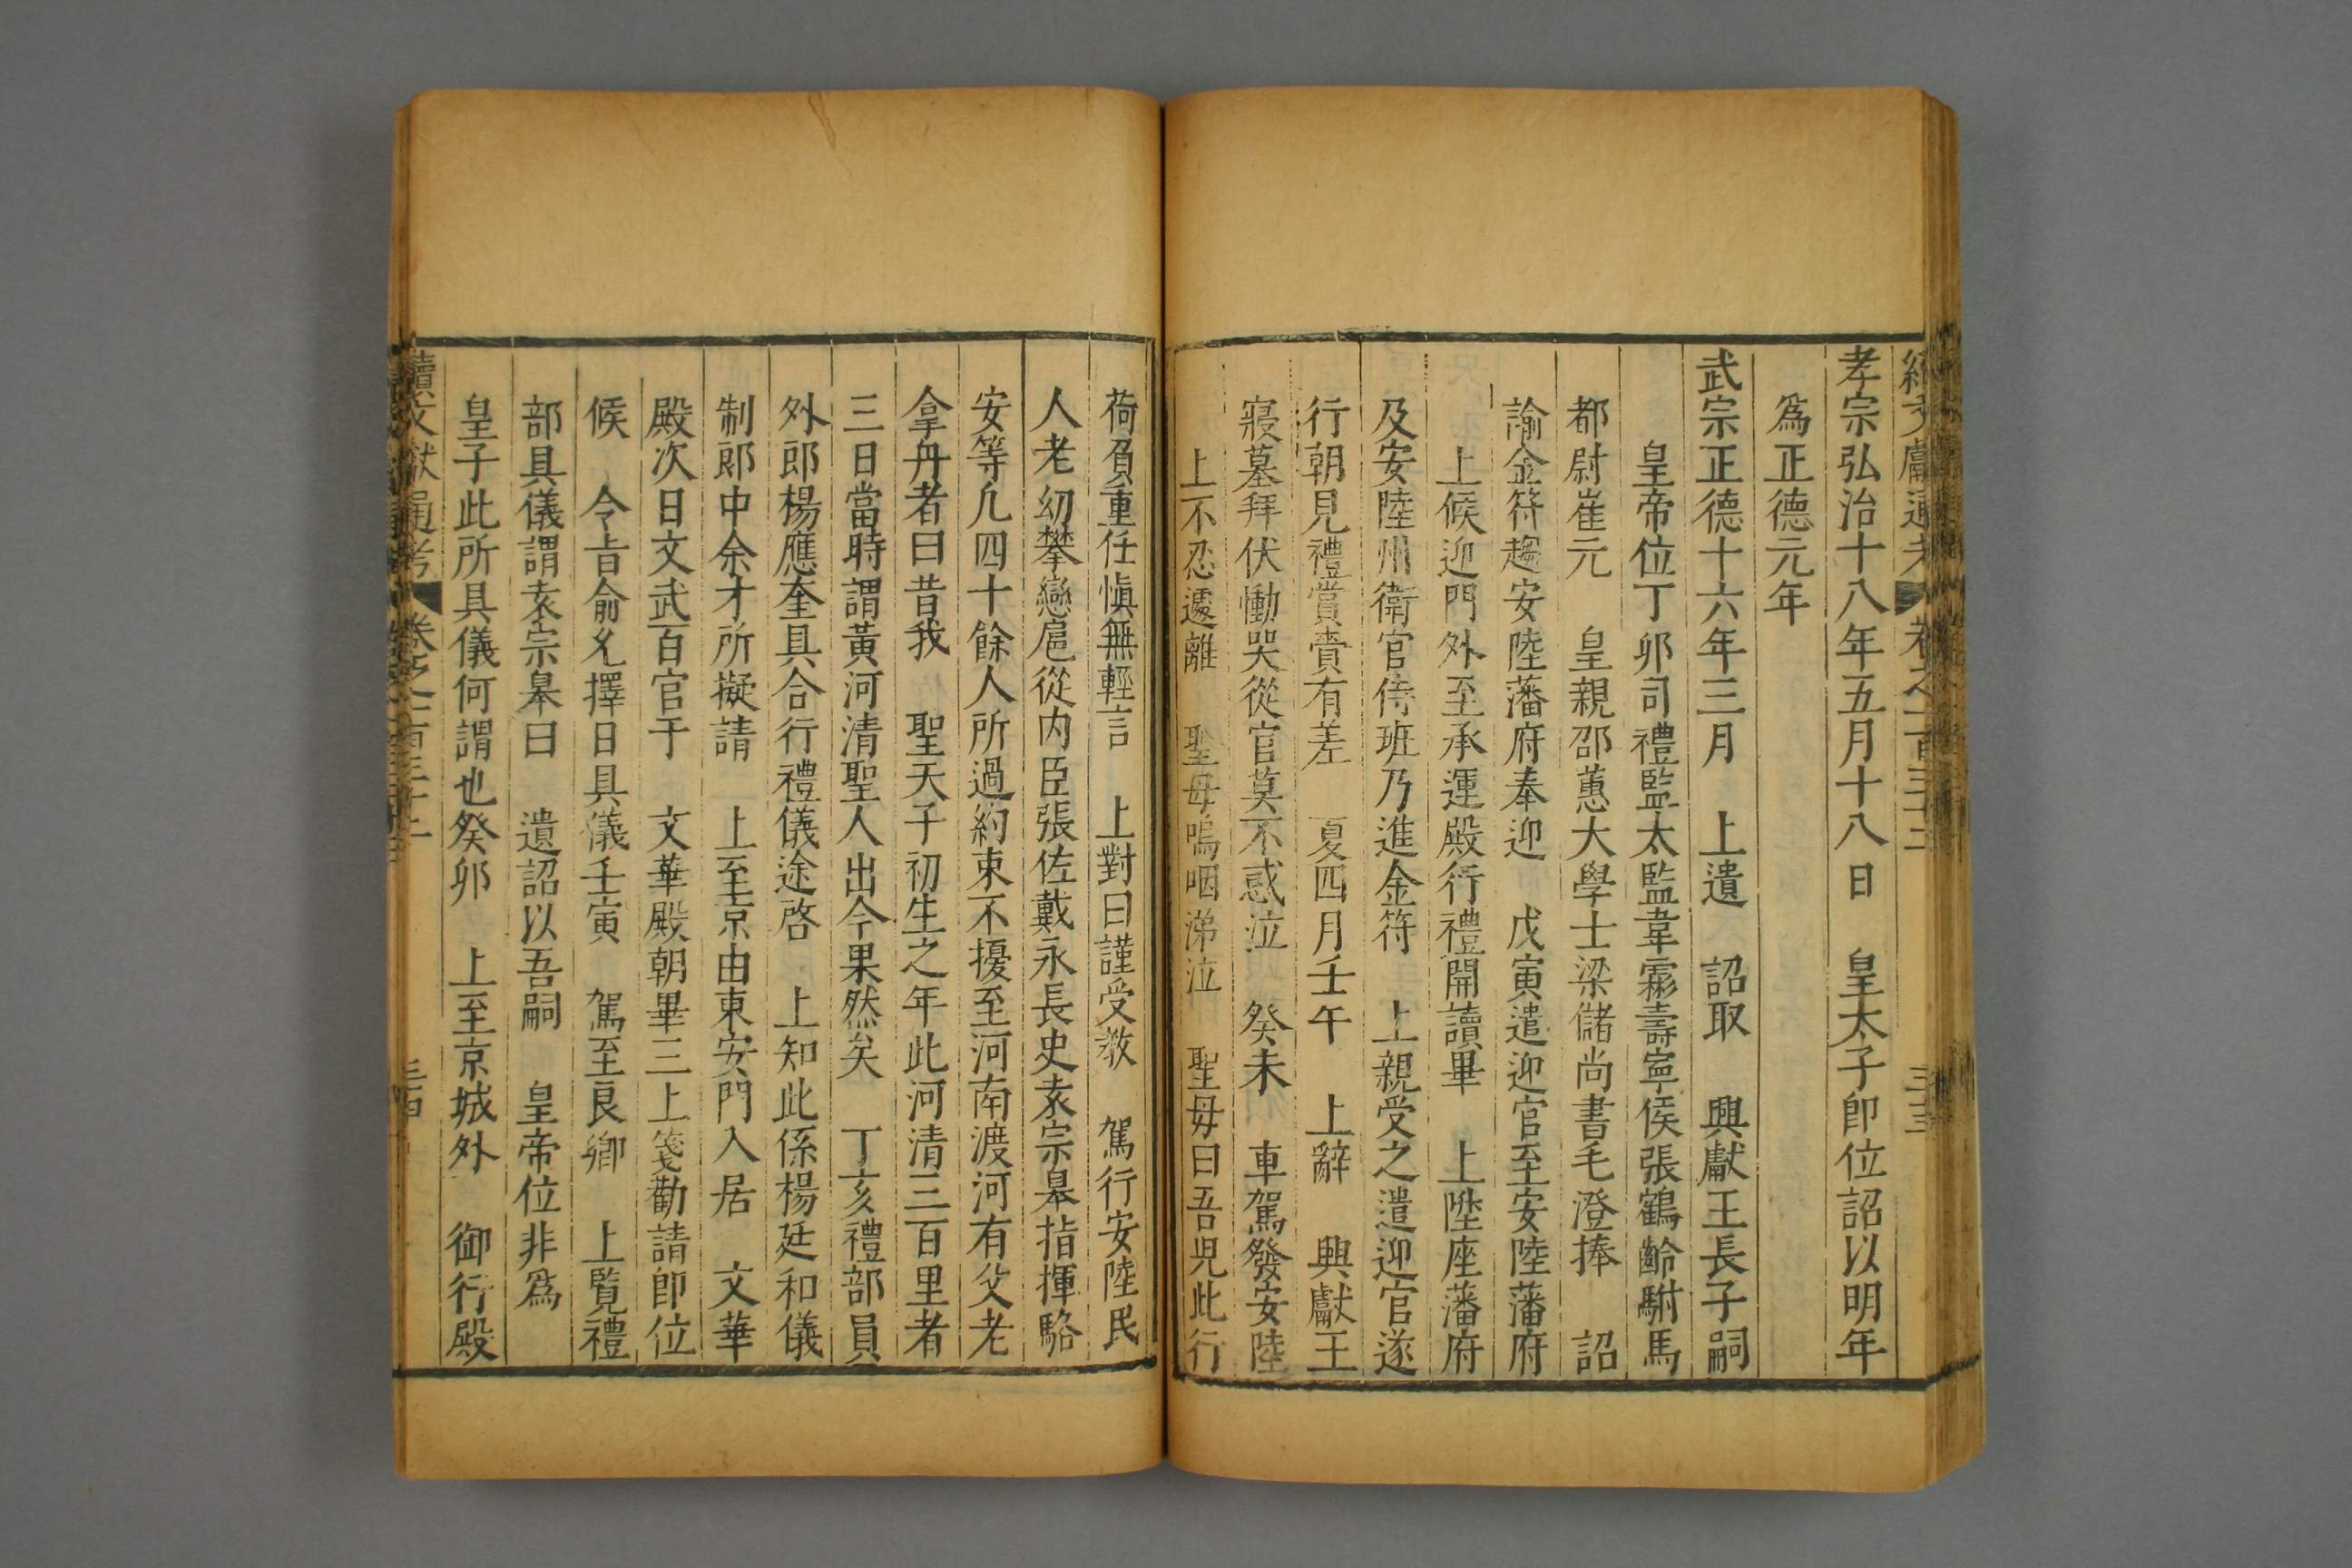 續文獻通考 卷之一百三十二 三三
孝宗弘治十八年五月十八日 皇太子即位詔以明年
爲正德元年
武宗正德十六年三月 上遺 詔取 興獻王長子嗣
皇帝位丁卯司禮監太監韋霦壽寧侯張鶴齡駙馬
都尉崔元 皇親邵蕙大學士梁儲尚書毛澄捧 詔
諭金符趨安陸藩府奉迎 戊寅遣迎官至安陸藩府
上候迎門外至承運殿行禮開讀畢 上陞座藩府
及安陸州衛官侍班乃進金符 上親受之遣迎官遂
行朝見禮賞賚有差 夏四月壬午 上辭 興獻王
寢墓拜伏慟哭從官莫不惑泣 癸未 車駕發安陸
上不忍遽離 聖母嗚咽涕泣 聖母曰吾児此行
荷負重任慎無輕言 上對曰謹受教 駕行安陸民
人老幼攀戀扈從内臣張佐戴永長史袁宗皋指揮駱
安等凢四十餘人所過約束不擾至河南渡河有父老
拿丹者曰昔我 聖天子初生之年此河清三百里者
三日當時謂黃河清聖人出今果然矣 丁亥禮部員
外郎楊應奎具合行禮儀途啓 上知此係楊廷和儀
制郎中余才所擬請 上至京由東安門入居 文華
殿次日文武百官于 文華殿朝畢三上箋勸請即位
候 令旨俞允擇日具儀壬寅 駕至良鄉 上覽禮
部具儀謂袁宗皋曰 遺詔以吾嗣 皇帝位非爲
皇子此所具儀何謂也癸卯 上至京城外 御行殿
續文獻通考 卷之一百三十二 三四